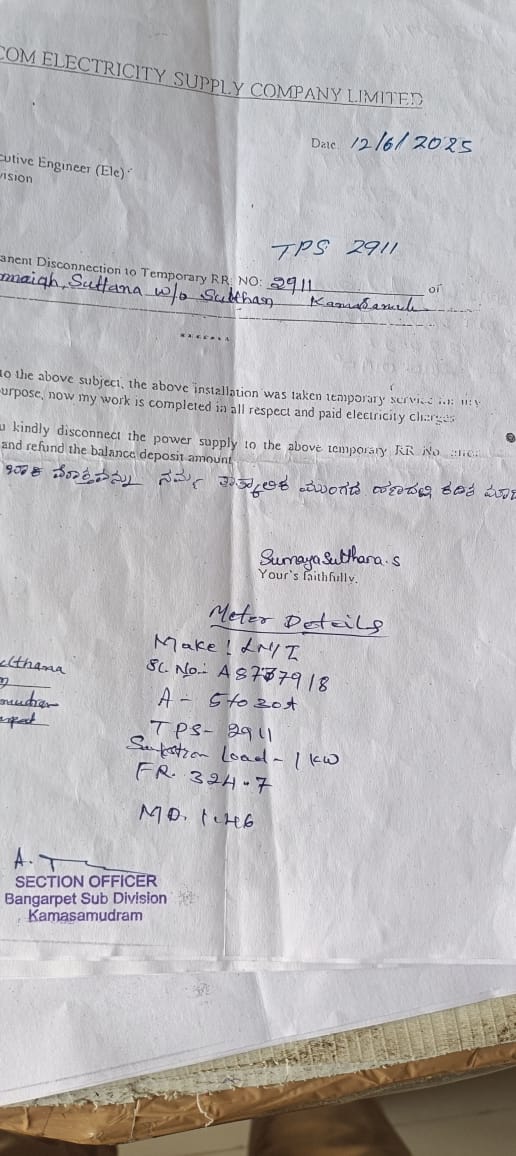 COM ELECTRICITY SUPPLY COMPANY LIMITED
Date 12/6/2025
cutive Engineer (Ele)
vision
TPS 2911
anent Disconnection to Temporary RR NO: 2911 of
Suttana w/o
*******
to the above subject, the above installation was taken temporary service in my
urpose, now my work is completed in all respect and paid electricity charges
u kindly disconnect the power supply to the above temporary RR No
and refund the balance deposit amount
ನಮ್ಮ ತಾತ್ಕಾಲಿಕ ಮುಂಗಡ
Sumaya Sulthana.s
Your's faithfully.
Meter Details
Make: LNT
Sl. No:-
A - 5 to 20A
TPS- 2911
Load - 1 KW
FR. 324.7
MD. 1.46
elthana
A.T
SECTION OFFICER
Bangarpet Sub Division
Kamasamudram